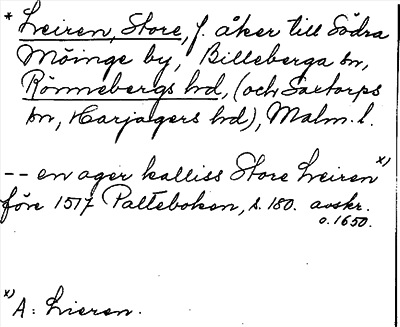 * Lreiren, Store, f. åker till Södra
Möinge by, Billeberga sn,
Rönnebergs hd, (och Saxtorps
sn, Harjagers hd), Malm. l.
-- en ager kalliss Store Lreiren x)
före 1517 Palteboken, s. 180. avskr.
o. 1650.
x) A: Lreren.